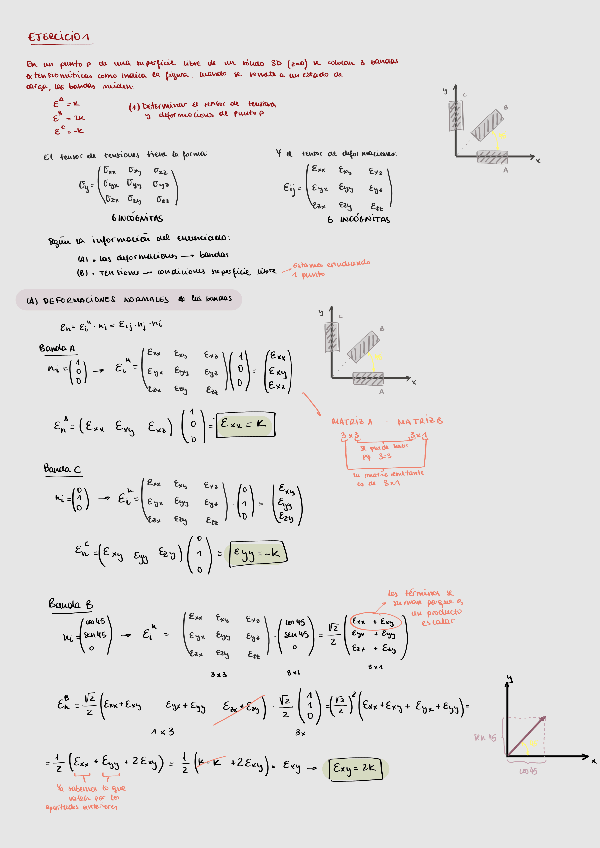 EJERCICIO 1
En un punto P de una superficie libre de un sólido 3D (z=0) se colocan 3 bandas
extensiométricas como indica la figura, cuando se somete a un estado de
carga, las bandas miden:
ε^A = K
ε^B = 2K
ε^C = -K
(1) Determinar el tensor de tensiones
y deformaciones del punto P
y
C
B
A
x
El tensor de tensiones tiene la forma:
Y el tensor de deformaciones:
σij = (σxx σxy σxz
σyx σyy σyz
σzx σzy σzz)
6 INCÓGNITAS
εij = (εxx εxy εxz
εyx εyy εyz
εzx εzy εzz)
6 INCÓGNITAS
Según la información del enunciado:
(A) • las deformaciones → bandas
(B) • Tensiones → condiciones superficie libre
Estamos estudiando
1 punto
(A) DEFORMACIONES NORMALES a las bandas
εn = εi^n · ni = εij · nj · ni
Banda A
ni = (1 0 0) → εi^n = (εxx εxy εxz
εyx εyy εyz
εzx εzy εzz) (1 0 0) = (εxx εxy εxz)
εn^A = (εxx εxy εxz) (1 0 0) = εxx = K
y
C
B
A
x
MATRIZ A MATRIZ B
3x3 3x1
se puede hacer
pq 3=3
la matriz resultante
es de 3x1
Banda C
ni = (0 1 0) → εi^n = (εxx εxy εxz
εyx εyy εyz
εzx εzy εzz) · (0 1 0) = (εxy εyy εzy)
εn^C = (εxy εyy εzy) (0 1 0) = εyy = -K
Banda B
ni = (cos45 sen45 0) → εi^n = (εxx εxy εxz
εyx εyy εyz
εzx εzy εzz) · (cos45 sen45 0) = √2/2 (εxx + εxy
εyx + εyy
εzx + εzy)
3x3 3x1 3x1
Los términos se
suman porque es
un producto
escalar
εn^B = √2/2 (εxx+εxy εyx+εyy εzx+εzy) · √2/2 (1 1 0) = (√2/2)² (εxx + εxy + εyx + εyy) =
1x3 3x
= 1/2 (εxx + εyy + 2εxy) = 1/2 (K - K + 2εxy) = εxy → εxy = 2K
Ya sabemos lo que
valen por los
apartados anteriores
y
sen 45
cos 45
x